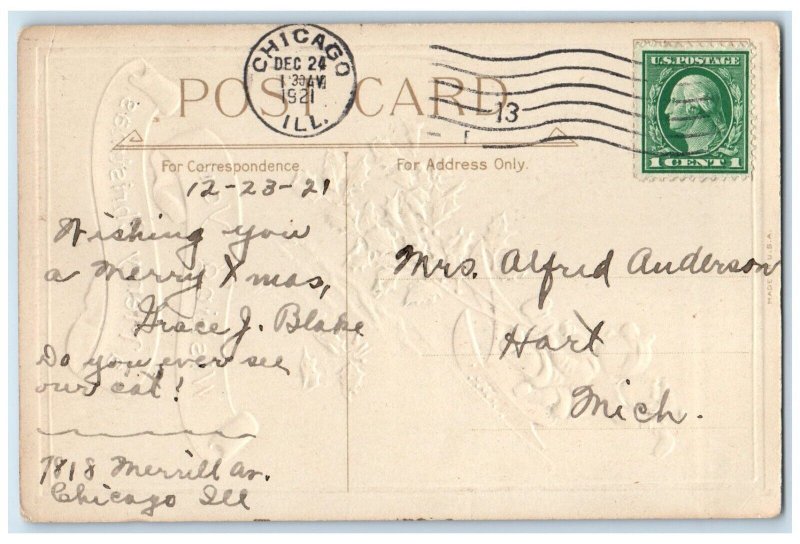 POST CARD
CHICAGO
DEC 24
1921
ILL.
13
U.S. POSTAGE
1 CENT 1
For Correspondence.
For Address Only.
12-23-21
Wishing you
a Merry Xmas,
Grace J. Blake
Do you ever see
our cat!
7818 Merrill Av.
Chicago Ill
Mrs. Alfred Anderson
Hart
Mich.
MADE IN U.S.A.